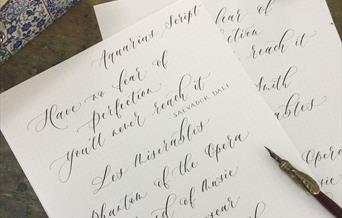 Aquarius Script
Have no fear of
perfection
You'll never reach it
-SALVADOR DALI
Les Miserables
Phantom of the Opera
of Music
fear of
reach it
with
Opera
Music